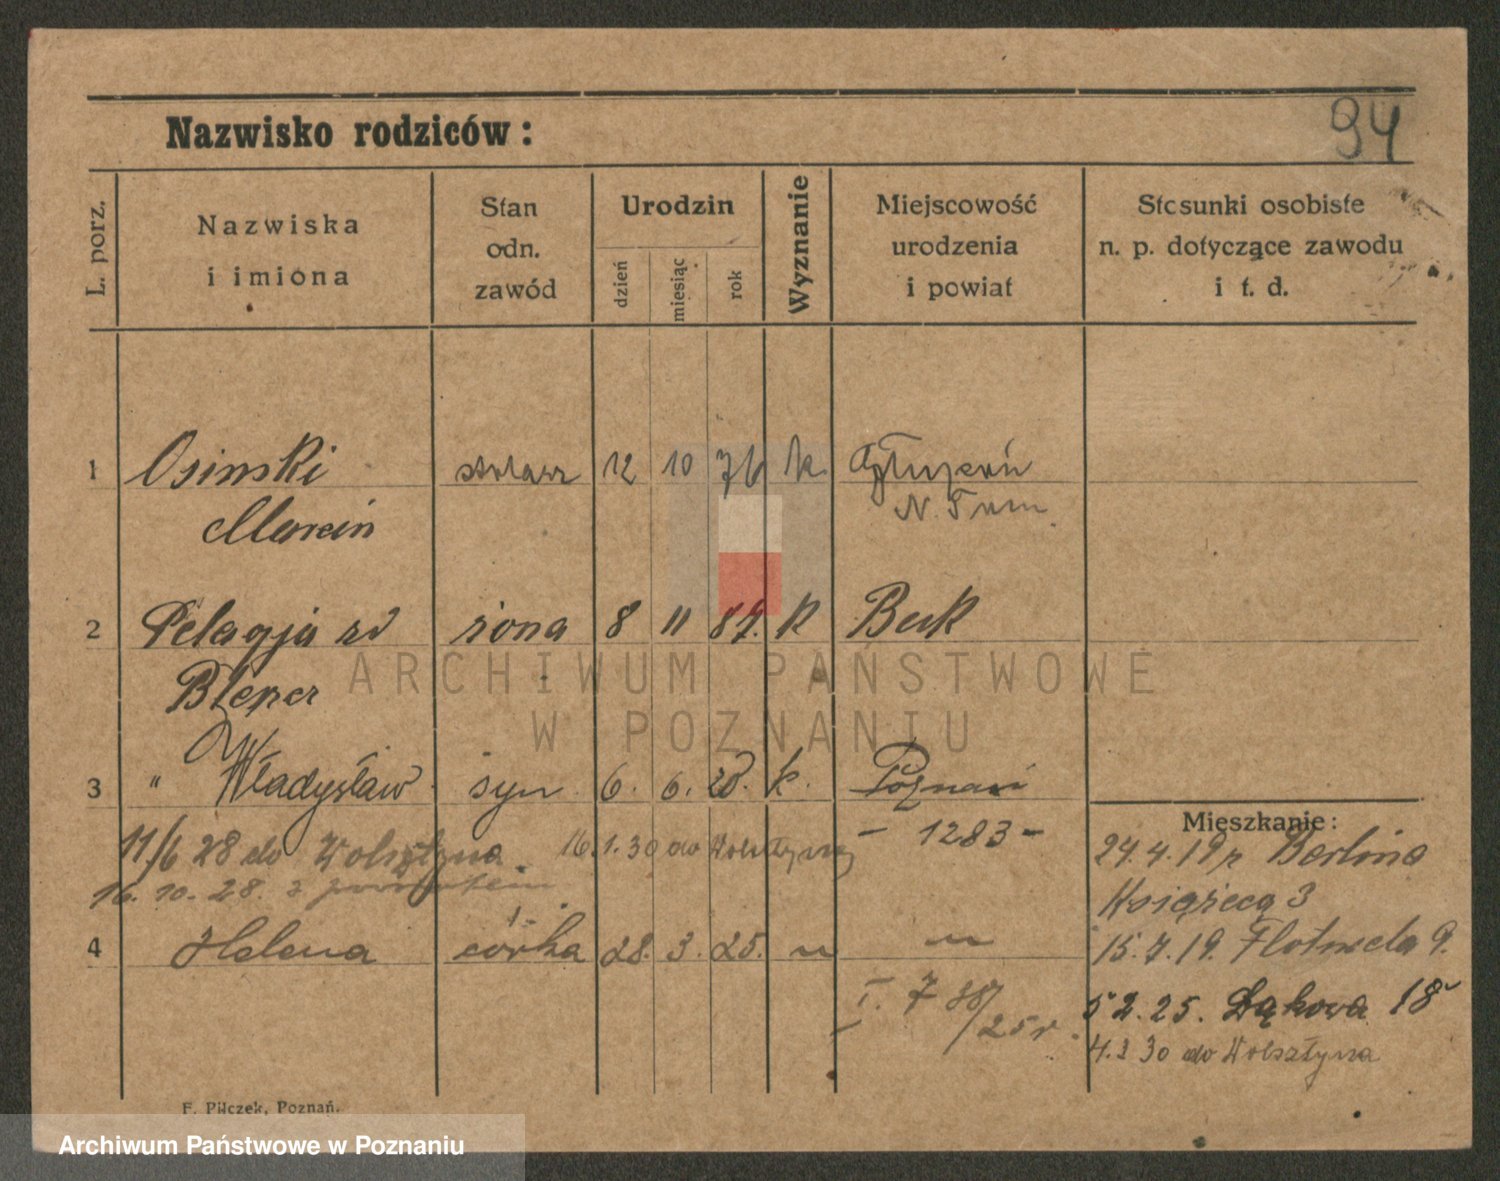 94
Nazwisko rodziców:
L. porz.
Nazwiska
i imiona
Stan
odn.
zawód
Urodzin
dzień
miesiąc
rok
Wyznanie
Miejscowość
urodzenia
i powiat
Stosunki osobiste
n. p. dotyczące zawodu
i t. d.
1 Osinski stolarz 12 10 76 k.
Marcin N. Tom.
2 Pelagja żona 8 11 87. k Buk
3 " Władysław syn 6. 6. 20. k. Poznań
- 1283 -
11/6 28 do Wolsztyna 16.1.30 do Wolsztyna
16.10.28. z powrotem
4 Helena córka 28. 3. 25. " "
I. 7
25 r.
Mieszkanie:
24.4.19 r Berlina
Książęca 3
15.7.19. Flotwela 9.
5 2. 25. Łąkowa 18
4.3 30 do Wolsztyna
F. Pilczek, Poznań.
ARCHIWUM PAŃSTWOWE
W POZNANIU
Archiwum Państwowe w Poznaniu